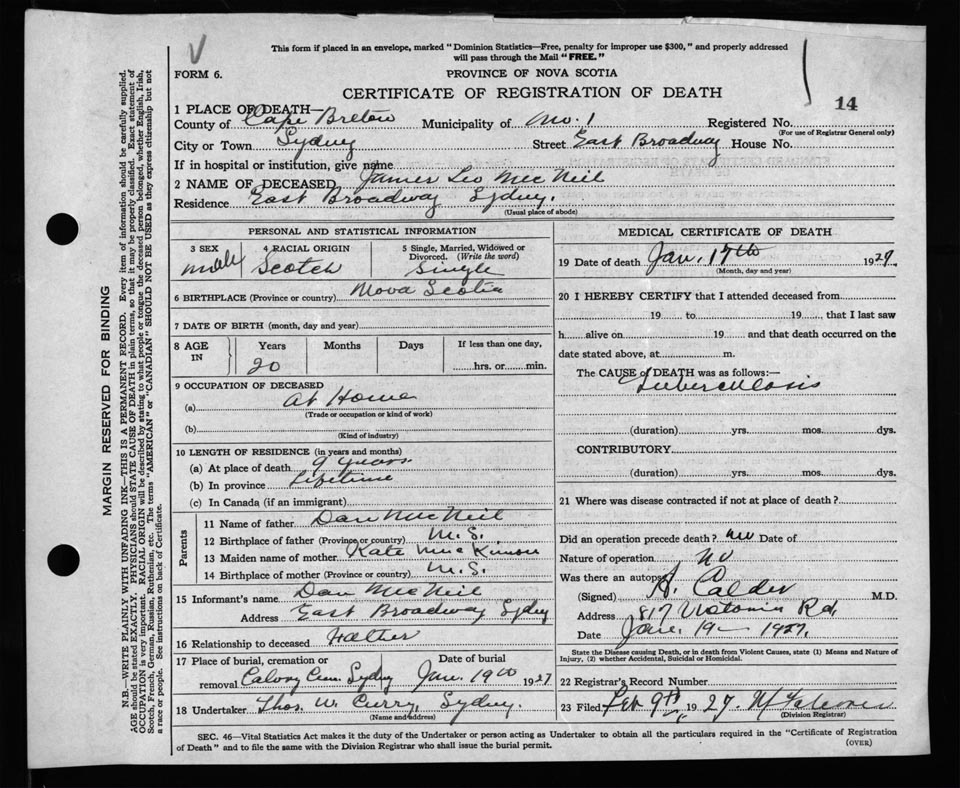 This form if placed in an envelope, marked "Dominion Statistics—Free, penalty for improper use $300," and properly addressed
will pass through the Mail "FREE."
FORM 6.
PROVINCE OF NOVA SCOTIA
CERTIFICATE OF REGISTRATION OF DEATH
14
1 PLACE OF DEATH—
County of Cape Breton Municipality of No. 1 Registered No.
(For use of Registrar General only)
City or Town Sydney Street East Broadway House No.
If in hospital or institution, give name
2 NAME OF DECEASED James Leo McNeil
Residence East Broadway Sydney.
(Usual place of abode)
PERSONAL AND STATISTICAL INFORMATION
3 SEX 4 RACIAL ORIGIN 5 Single, Married, Widowed or Divorced. (Write the word)
male Scotch Single
6 BIRTHPLACE (Province or country) Nova Scotia
7 DATE OF BIRTH (month, day and year)
8 AGE IN Years Months Days If less than one day,
20 hrs. or min.
9 OCCUPATION OF DECEASED
(a) At Home
(Trade or occupation or kind of work)
(b)
(Kind of industry)
10 LENGTH OF RESIDENCE (in years and months)
(a) At place of death 9 years
(b) In province Lifetime
(c) In Canada (if an immigrant)
Parents
11 Name of father Dan McNeil
12 Birthplace of father (Province or country) N.S.
13 Maiden name of mother Kate McKinnon
14 Birthplace of mother (Province or country) N.S.
15 Informant's name Dan McNeil
Address East Broadway Sydney
16 Relationship to deceased Father
17 Place of burial, cremation or Date of burial
removal Calvary Cem. Sydney Jan. 19th 1927
18 Undertaker Thos. W. Curry, Sydney.
(Name and address)
MEDICAL CERTIFICATE OF DEATH
19 Date of death Jan. 17th 1927.
(Month, day and year)
20 I HEREBY CERTIFY that I attended deceased from
19 to 19, that I last saw
h alive on 19 and that death occurred on the
date stated above, at m.
The CAUSE of DEATH was as follows:—
Tuberculosis
(duration) yrs. mos. dys.
CONTRIBUTORY
(duration) yrs. mos. dys.
21 Where was disease contracted if not at place of death?
Did an operation precede death? no Date of
Nature of operation
Was there an autopsy no
(Signed) A. Calder M.D.
Address 817 Victoria Rd.
Date Jan. 19— 1927.
State the Disease causing Death, or in death from Violent Causes, state (1) Means and Nature of
Injury, (2) whether Accidental, Suicidal or Homicidal.
22 Registrar's Record Number
23 Filed Feb 9th 1927
(Division Registrar)
SEC. 46—Vital Statistics Act makes it the duty of the Undertaker or person acting as Undertaker to obtain all the particulars required in the "Certificate of Registration
of Death" and to file the same with the Division Registrar who shall issue the burial permit.
(OVER)
MARGIN RESERVED FOR BINDING
N.B.—WRITE PLAINLY WITH UNFADING INK—THIS IS A PERMANENT RECORD. Every item of information should be carefully supplied.
AGE should be stated EXACTLY. PHYSICIANS should STATE CAUSE OF DEATH in plain terms, so that it may be properly classified. Exact statement of
OCCUPATION is very important. RACIAL ORIGIN will be described by stating to what people or tongue the deceased person belonged, whether English, Irish,
Scotch, French, German, Russian, Ruthenian, etc. The terms "AMERICAN" or "CANADIAN" SHOULD NOT BE USED as they express citizenship but not
a race or people. See instructions on back of Certificate.